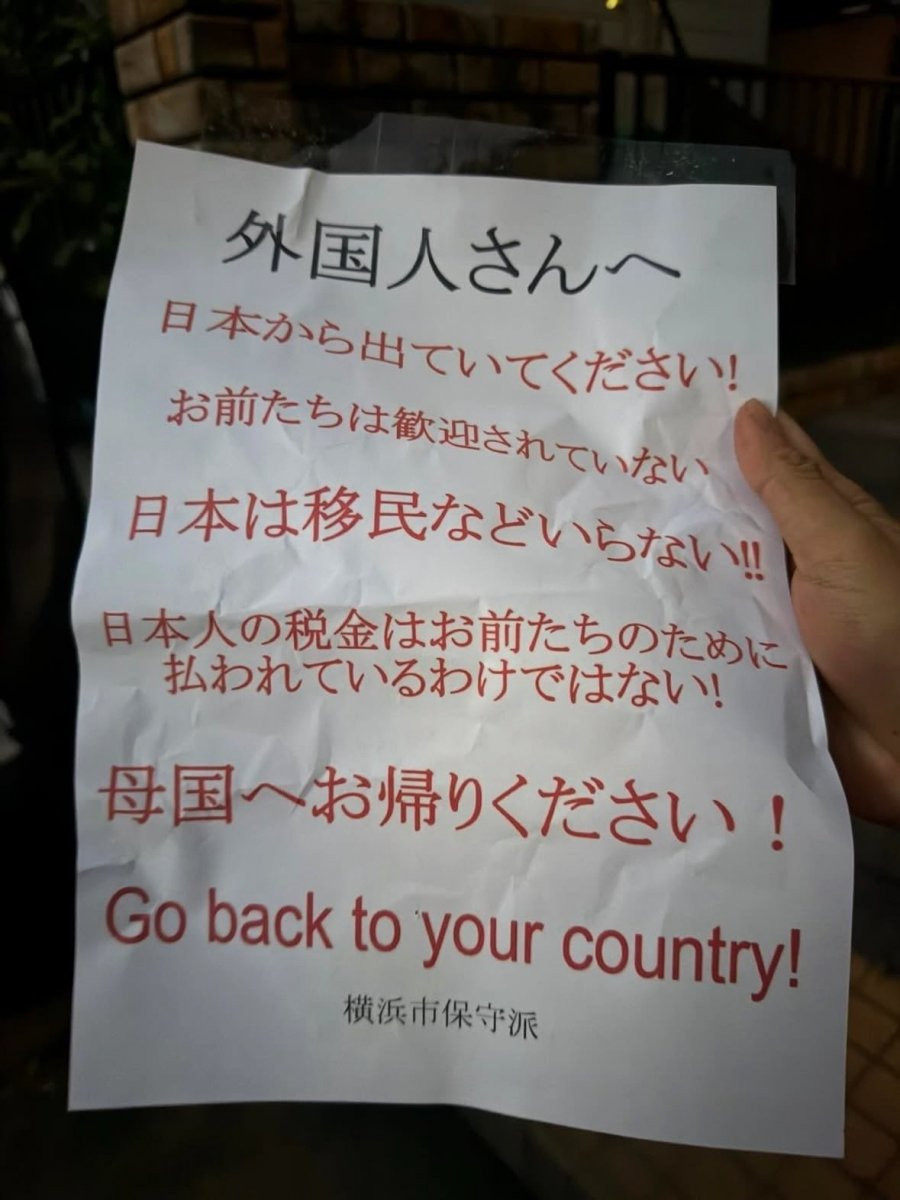 外国人さんへ
日本から出ていてください!
お前たちは歓迎されていない
日本は移民などいらない!!
日本人の税金はお前たちのために
払われているわけではない!
母国へお帰りください！
Go back to your country!
横浜市保守派